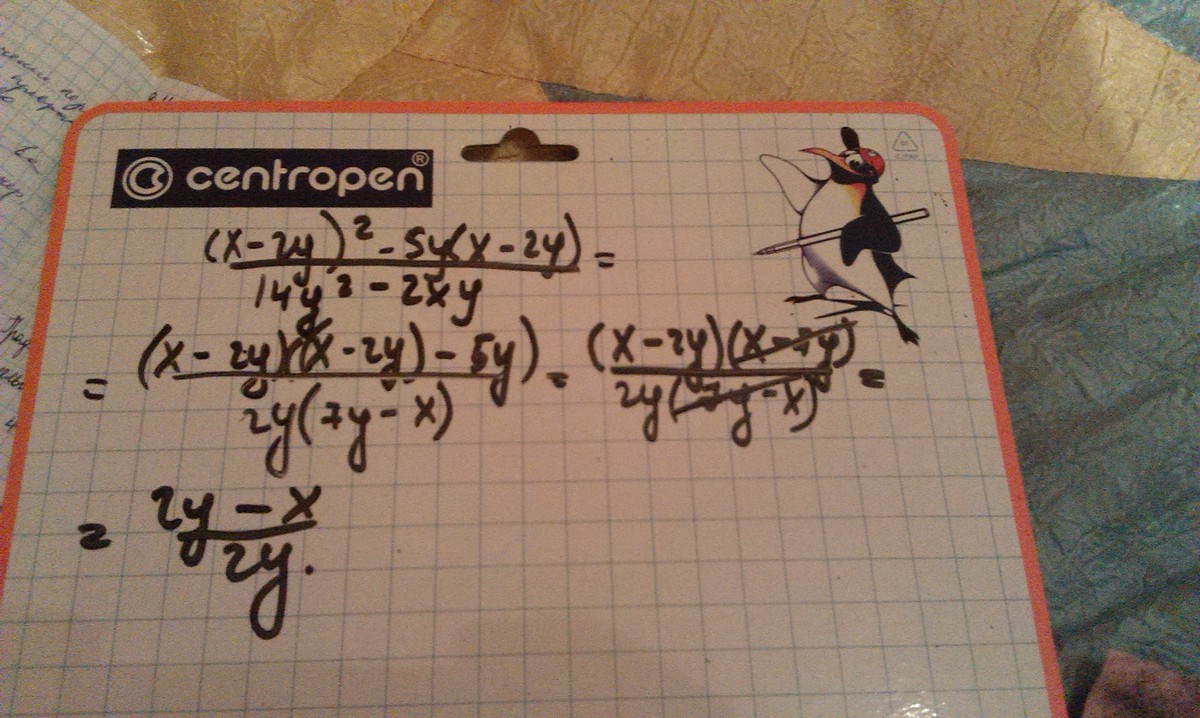 centropen®
(x-2y)² - 5y(x-2y) =
14y² - 2xy
= (x-2y)((x-2y)-5y) = (x-2y)(x-7y) =
2y(7y-x) 2y(7y-x)
= 2y-x
2y.